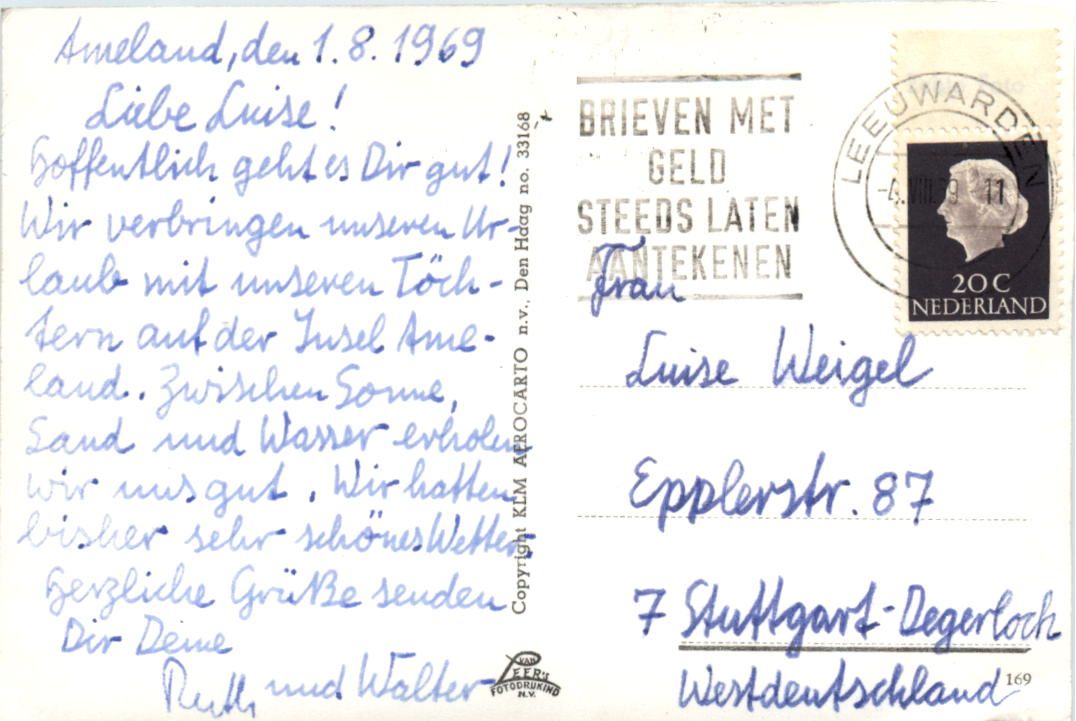 Ameland, den 1.8.1969
Liebe Luise!
Hoffentlich geht es Dir gut!
Wir verbringen unseren Ur-
laub mit unseren Töch-
tern auf der Insel Ame-
land. Zwischen Sonne,
Sand und Wasser erholen
wir uns gut. Wir hatten
bisher sehr schönes Wetter.
Herzliche Grüße senden
Dir Deine
Ruth und Walter
Copyright KLM AEROCARTO n.v., Den Haag no. 33168
VAN
LEER'S
FOTODRUKIND
N.V.
BRIEVEN MET
GELD
STEEDS LATEN
AANTEKENEN
LEEUWARDEN
VIII. 11
20 C
NEDERLAND
Frau
Luise Weigel
Epplerstr. 87
7 Stuttgart-Degerloch
Westdeutschland
169